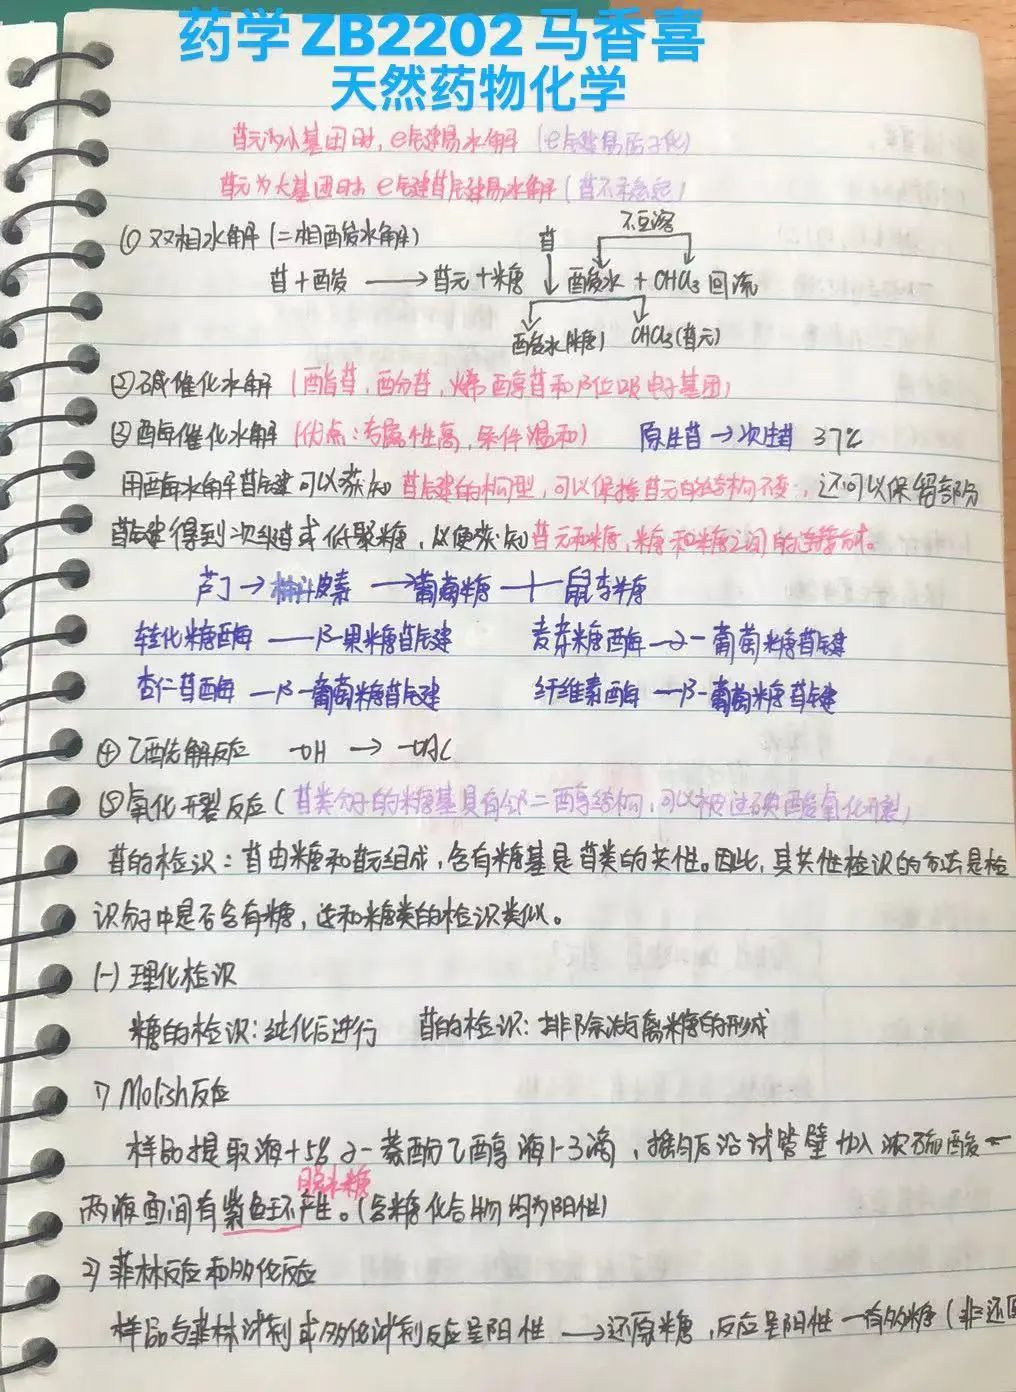 药学ZB2202马香喜
天然药物化学
苷元为小基团时，e苷键易水解（e苷键易质子化）
苷元为大基团时 e苷键苷键易水解（苷不稳定）
① 双相水解（二相酸水解） 苷 不互溶
苷+酸 ⟶ 苷元+糖 ↓ 酸水 + CHCl₃ 回流
酸水（糖） CHCl₃（苷元）
②碱催化水解（酯苷，酚苷，烯醇苷和β位吸电子基团）
③酶催化水解（优点：专属性高，条件温和） 原生苷→次生苷 37℃
用酶水解苷键可以获知苷键的构型，可以保持苷元的结构不变，还可以保留部分
苷键得到次级苷或低聚糖，以便获知苷元和糖，糖和糖之间的连接方式。
芦丁→槲皮素 ⟶葡萄糖 — 鼠李糖
转化糖酶 —β-果糖苷键 麦芽糖酶→α-葡萄糖苷键
杏仁苷酶 —β-葡萄糖苷键 纤维素酶 —β-葡萄糖苷键
④乙酰解反应 -OH → -OAc
⑤氧化开裂反应（苷类分子的糖基具有邻二醇结构，可以被过碘酸氧化开裂）
苷的检识：苷由糖和苷元组成，含有糖基是苷类的共性。因此，其共性检识的方法是检
识分子中是否含有糖，这和糖类的检识类似。
(一)理化检识
糖的检识：纯化后进行 苷的检识：排除游离糖的形成
1) Molish反应
样品提取液+5% α-萘酚乙醇液1-3滴，摇匀后沿试管壁加入浓硫酸—
脱水糖
两液面间有紫色环产生。（含糖化合物均为阳性）
2) 菲林反应和多伦反应
样品与菲林试剂或多伦试剂反应呈阳性 ⟶还原糖，反应呈阳性—有多糖（非还原